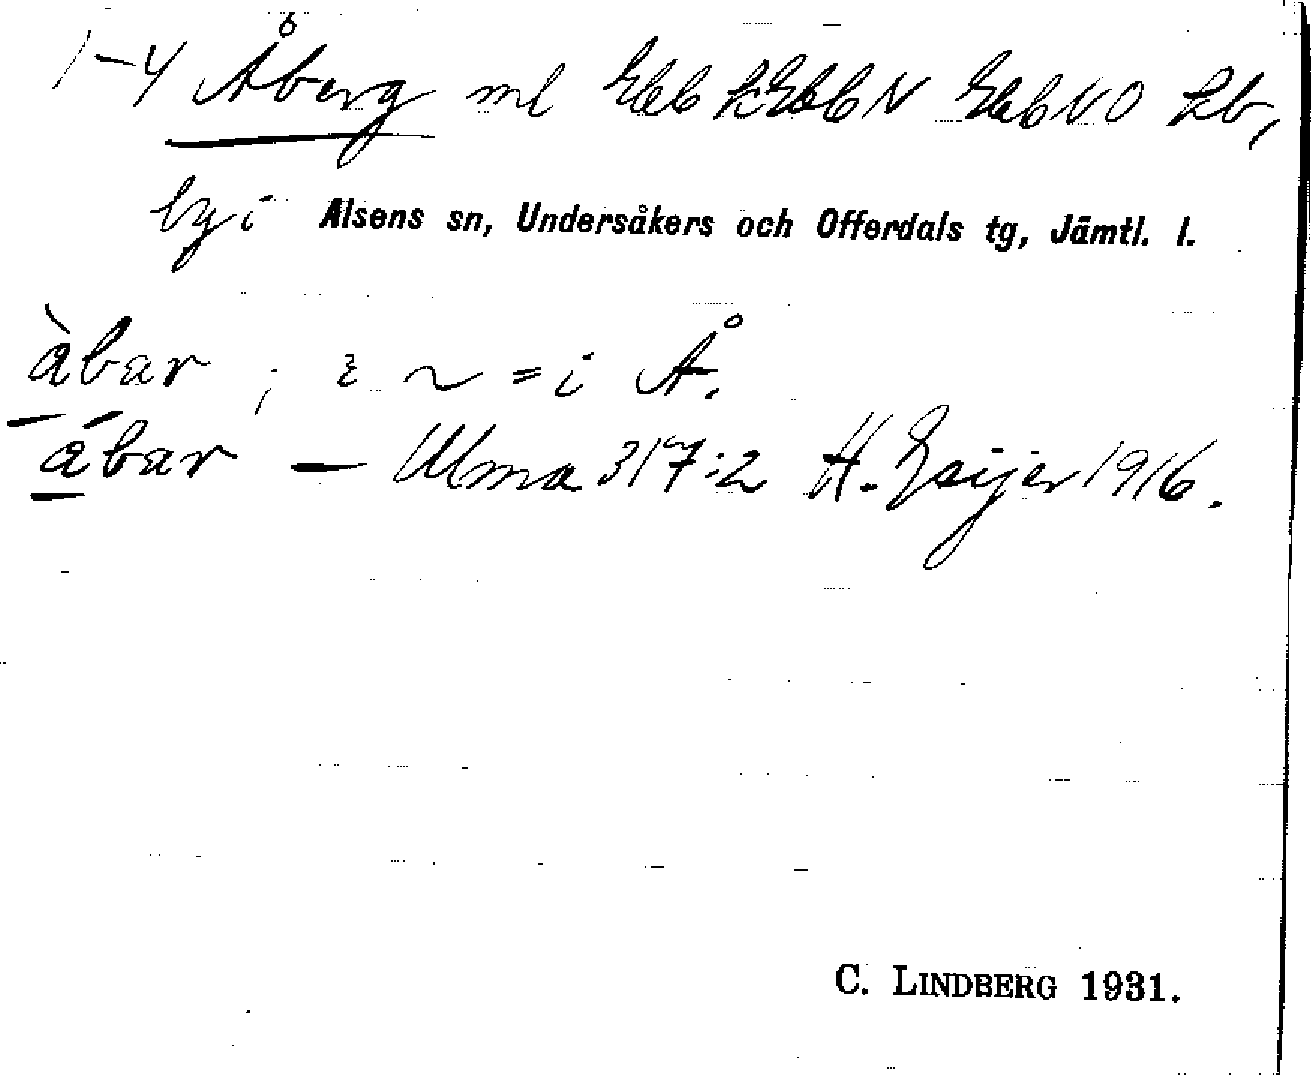 1-4 Åberg ml Ebb N Ebb NO Lb,
by i Alsens sn, Undersåkers och Offerdals tg, Jämtl. l.
àbar ; ~ = i Å.
ábar — Ulma 317:2 H. Geijer 1916.
C. LINDBERG 1931.